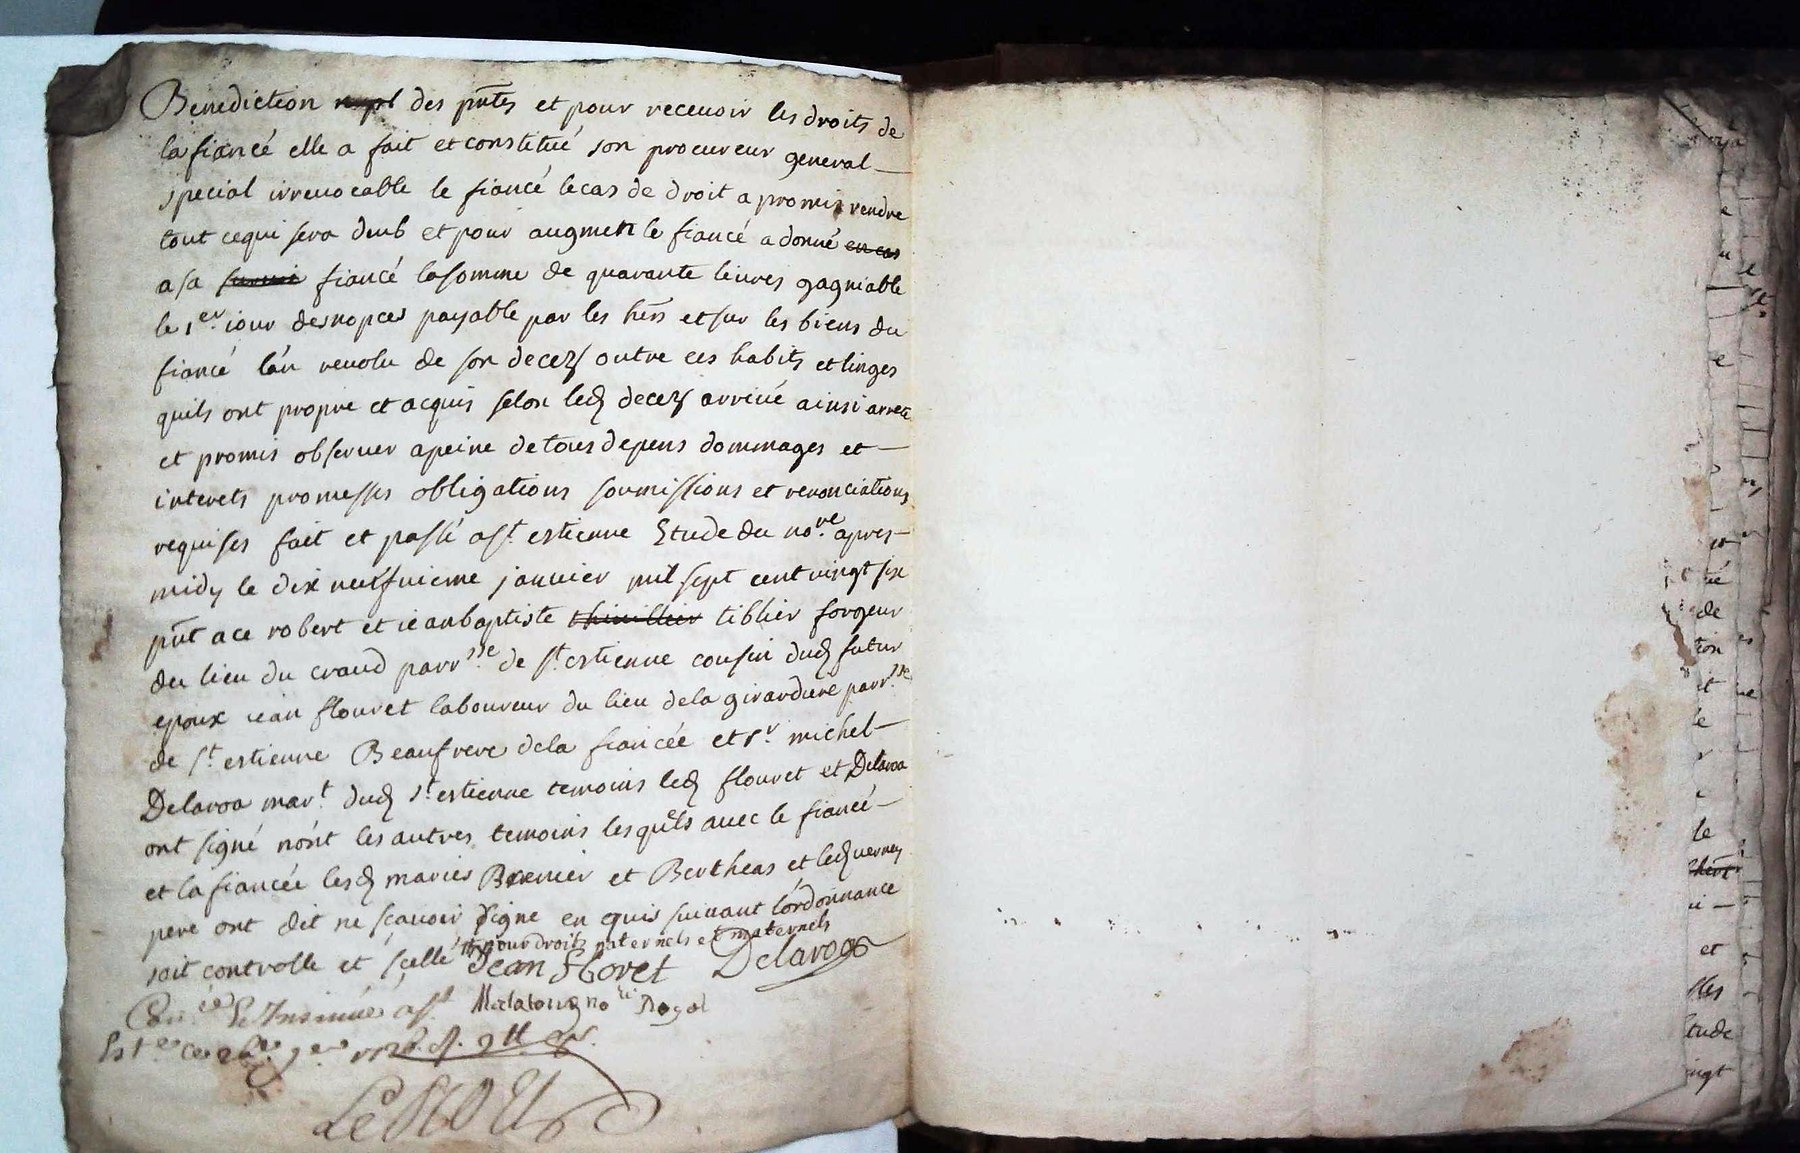 Benediction nupl des pñtes et pour recevoir les droits de
la fiancé elle a fait et constitué son procureur general
special irrevocable le fiancé le cas de droit a promis rendre
tout cequi sera deub et pour augmen le fiancé a donné en cas
a sa fiancé lasomme de quarante leivres gagniable
le 1er jour desnopces payable par les hers et sur les biens du
fiancé l'an revolu de son decez outre ces habits et linges
quils ont propre et acquis selon led decez arrivé ainsi arreté
et promis observer apeine detousdepens dommages et
interets promesses obligations soumissions et renonciations
requises fait et passé a st estienne Etude du nore apres
midy le dix neufvieme janvier mil sept cent vingt six
pñt a ce robert et jeanbaptiste thiullier tiblier forgeur
du lieu du craud parrsse de st estienne cousin dud futur
epoux jean flouret laboureur du lieu dela girardiere parrsse
de st estienne Beaufrere dela fiancée et sr michel
Delaroa mart dud st estienne temoins led flouret et Delaroa
ont signé nont les autres temoins lesquels avec le fiancé
et la fiancée lesd mariés Brenier et Bertheas et led verney
pere ont dit ne scavoir signe en equis suivant l'ordonnance
soit controlle et scellé
pour droits paternels et maternels
Jean floret Delaroa
Malatour nore Royal
Con Et Insinué a st